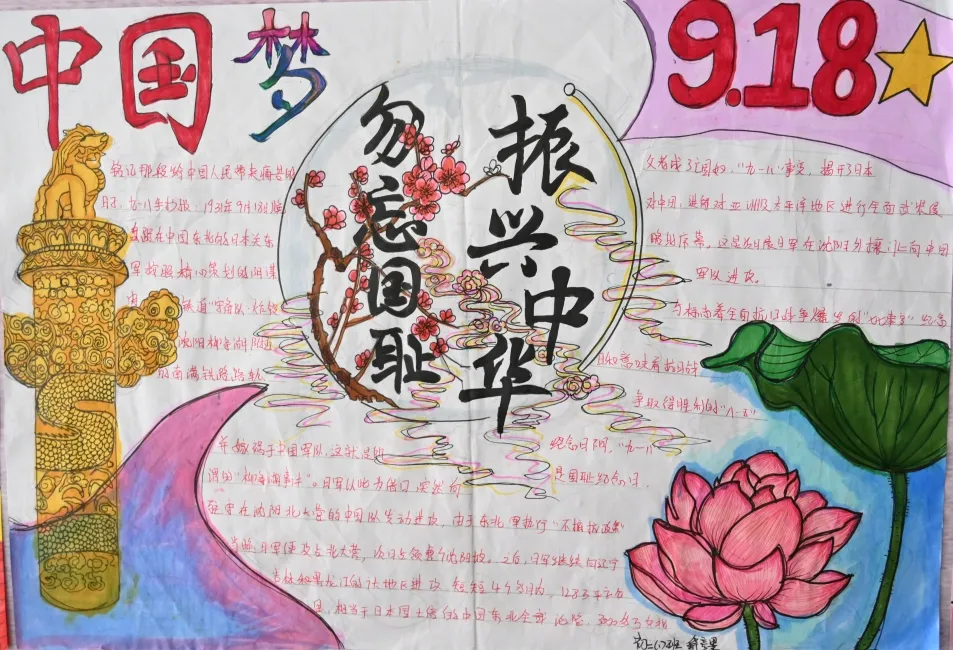 中国梦
9.18
勿忘国耻
振兴中华
铭记那段给中国人民带来痛苦的
日子,九一八事变 1931年9月18日晚
盘踞在中国东北的日本关东
军按照精心策划的阴谋
铁道"守备队"炸毁
沈阳柳条湖附近
的南满铁路路轨
并嫁祸于中国军队,这就是所
谓的"柳条湖事件"。日军以此为借口,突然向
驻守在沈阳北大营的中国
军队发动进攻,由于东北军执行"不抵抗政策"
当晚日军便攻占北大营,次日占领整个沈阳城。之后,日军继续向辽宁
吉林和黑龙江的广大地区进攻,短短4个多月内,128万平方
相当于日本国土
的中国东北全部沦陷,3000多万父老
父老成了亡国奴,"九一八"事变,揭开了日本
对中国,进而对亚洲及太平洋地区进行全面武装侵
略的序幕,
向中国
军队进攻。
争取得胜利的"八一五"
纪念日 "九一八"
是国耻纪念日。